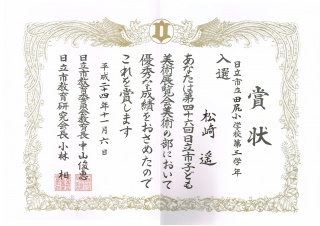 賞状
日立市立田尻小学校第三学年
入選
松崎遥
あなたは第四十六回日立市子ども
美術展覧会美術の部において
優秀な成績をおさめたので
これを賞します
平成二十四年十一月六日
日立市教育委員会教育長 中山俊恵
日立市教育研究会長 小林